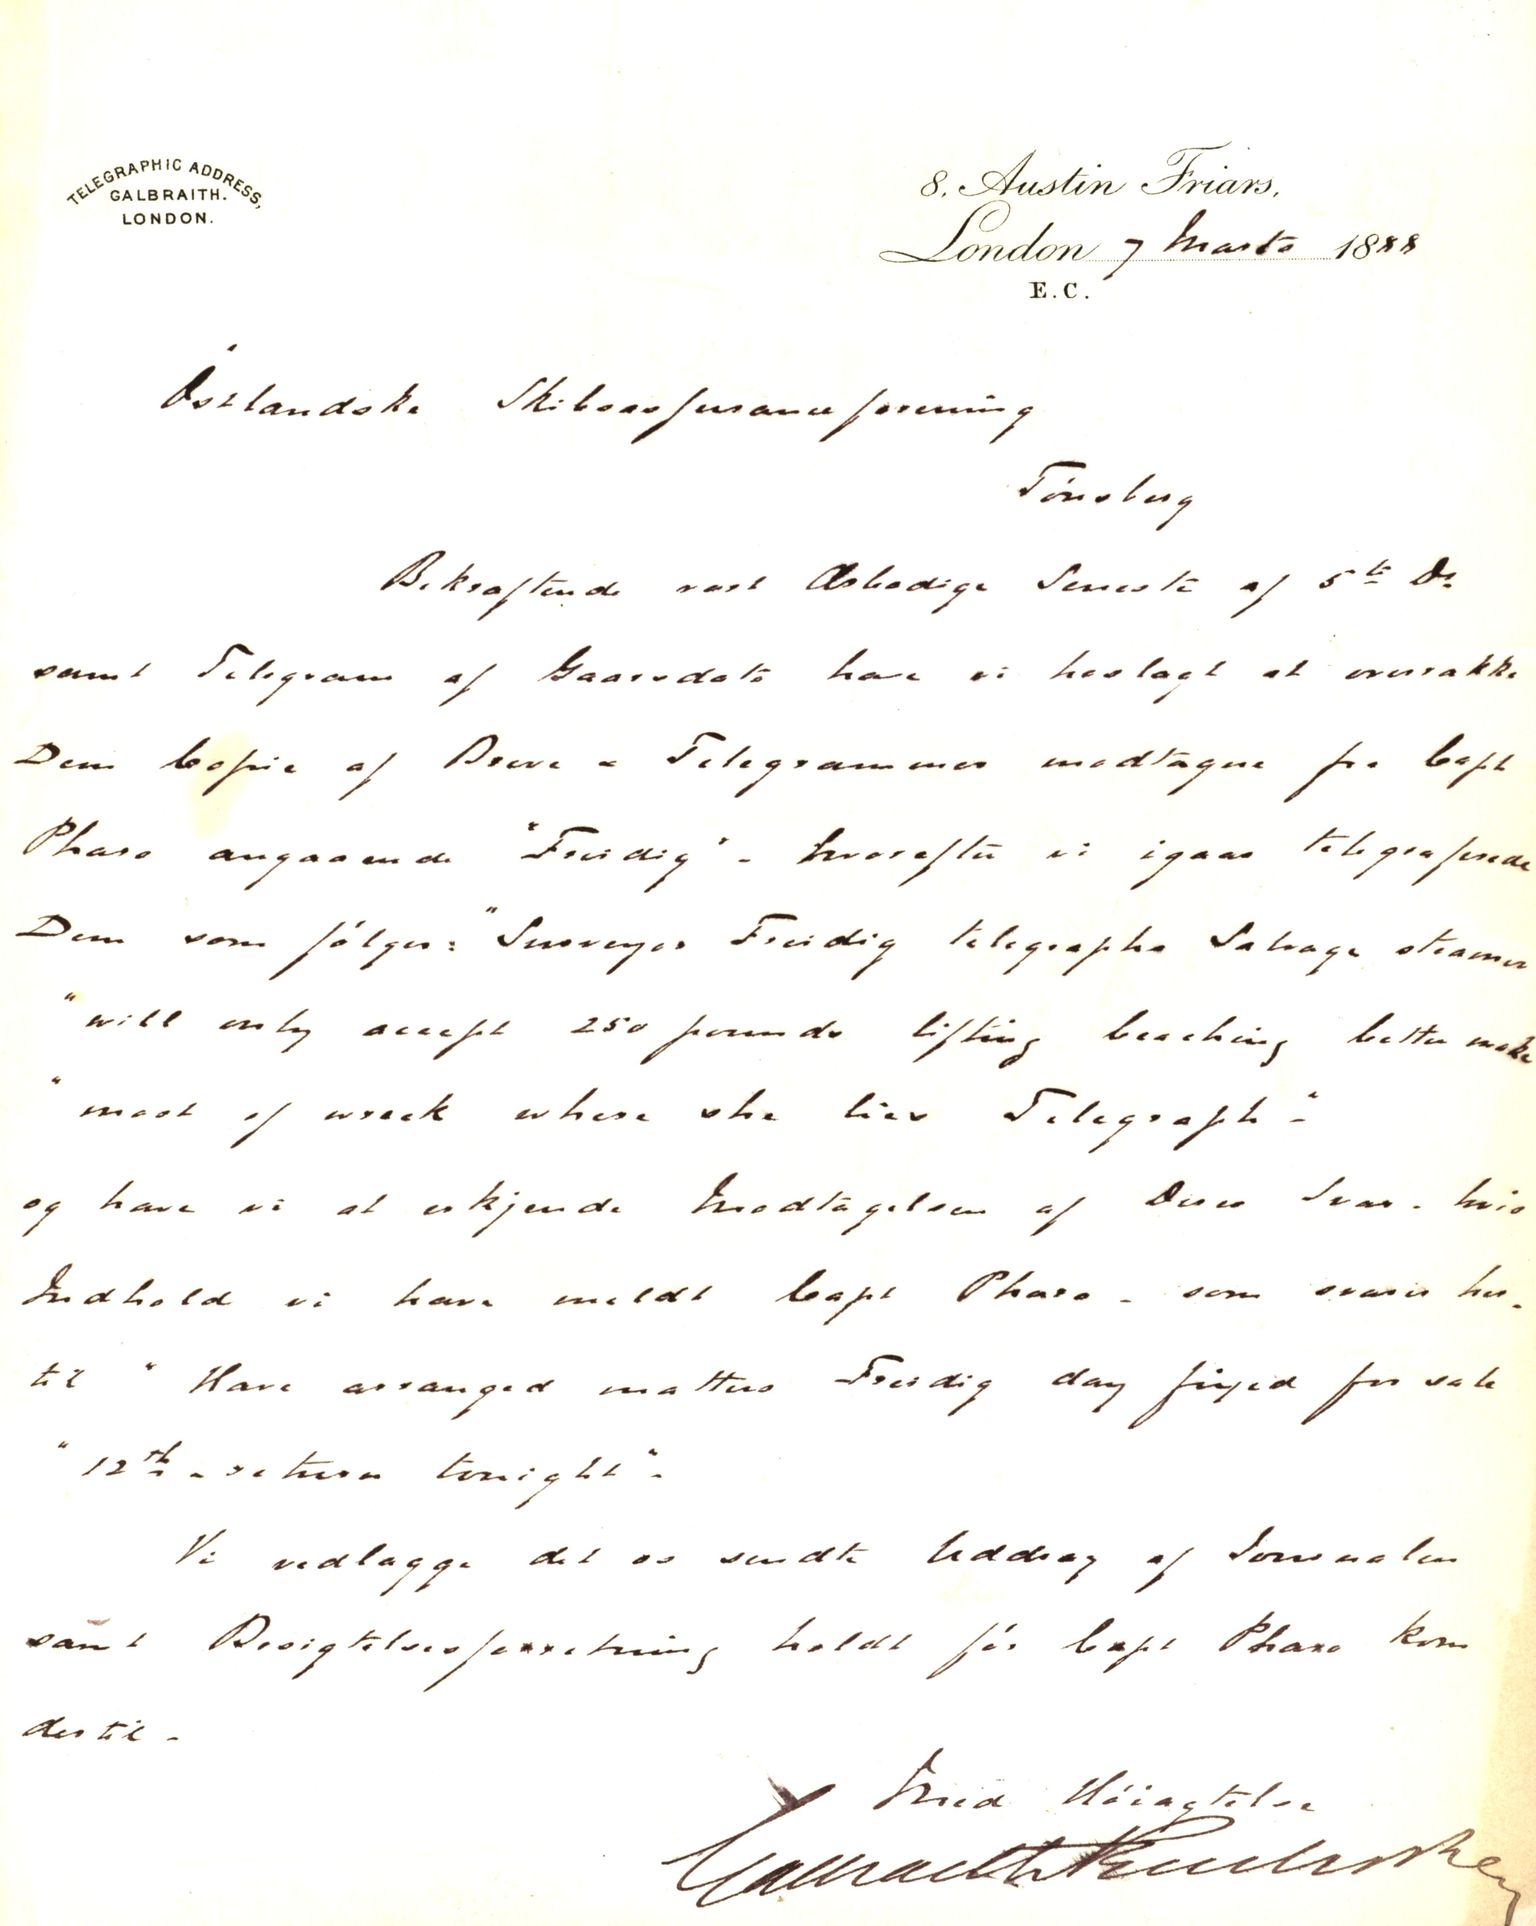 TELEGRAPHIC ADDRESS,
GALBRAITH.
LONDON.
8. Austin Friars,
London 7 Marts 1888
E.C.
Östlandske Skibsassuranceforening
Tönsberg
Bekræftende vort Ærbödige Seneste af 5te Ds
samt Telegram af Gaarsdato have vi herlagt at overrække
Dem Copie af Breve & Telegrammer modtagne fra Capt
Pharo angaaende "Freidig" - hvorefter vi igaar telegraferede
Dem som fölger: "Surveyor Freidig telegraphs Salvage steamer
"will only accept 250 pounds lifting beaching better make
"most of wreck where she lies Telegraph"-
og have vi at erkjende Modtagelsen af Deres Svar - hvis
Indhold vi have meldt Capt Pharo - som svarer her-
til "Have arranged matters Freidig day fixed for sale
"12th - return tonight"-
Vi vedlægge det os sendte Uddrag af Journalen
samt Besigtelsesforretning holdt för Capt Pharo kom
dertil -
Med Höiagtelse
Galbraith